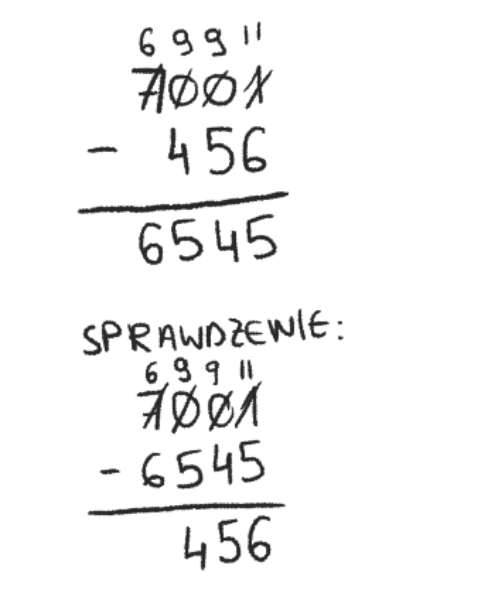 6 9 9 11
7001
- 456
6545
SPRAWDZENIE:
6 9 9 11
7001
- 6545
456